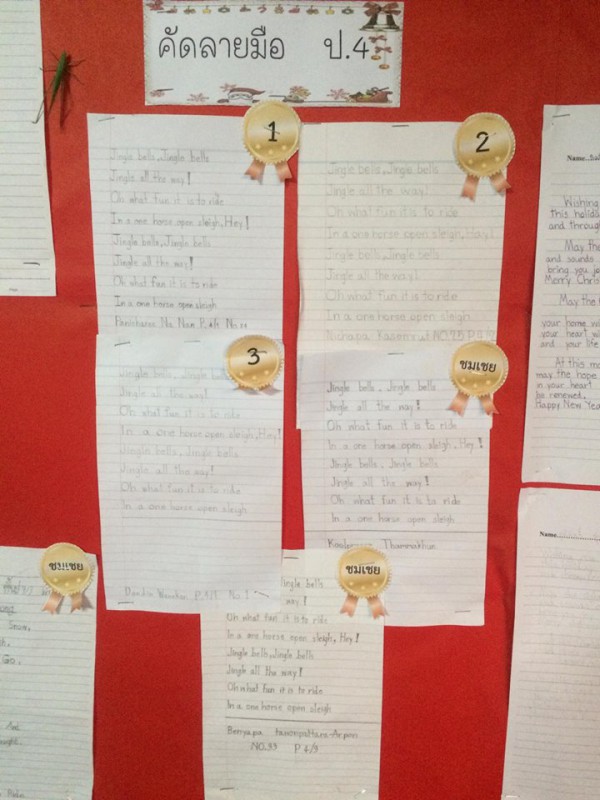 คัดลายมือ ป.4
1
Jingle bells, Jingle bells
Jingle all the way!
Oh what fun it is to ride
In a one horse open sleigh, Hey!
Jingle bells, Jingle bells
Jingle all the way!
Oh what fun it is to ride
In a one horse open sleigh
2
Jingle bells, Jingle bells
Jingle all the way!
Oh what fun it is to ride
In a one horse open sleigh, Hey!
Jingle bells, Jingle bells
Jingle all the way!
Oh what fun it is to ride
In a one horse open sleigh
Nichapa
3
Jingle bells, Jingle
Jingle all the way!
Oh what fun it is to ride
In a one horse open sleigh, Hey!
Jingle bells, Jingle bells
Jingle all the way!
Oh what fun it is to ride
In a one horse open sleigh
ชมเชย
Jingle bells, Jingle bells
Jingle all the way!
Oh what fun it is to ride
In a one horse open sleigh, Hey!
Jingle bells, Jingle bells
Jingle all the way!
Oh what fun it is to ride
In a one horse open sleigh
ชมเชย
Jingle bells
way!
Oh what fun it is to ride
In a one horse open sleigh, Hey!
Jingle bells, Jingle bells
Jingle all the way!
Oh what fun it is to ride
In a one horse open sleigh
NO.33 P 4/3
ชมเชย
Name
Wishing
this holida
and throug
May the
and sounds
bring you
Merry Chris
May the
your home wi
your heart wi
and your life
At this
may the hope
in your heart
be renewed,
Happy New Yea
Name